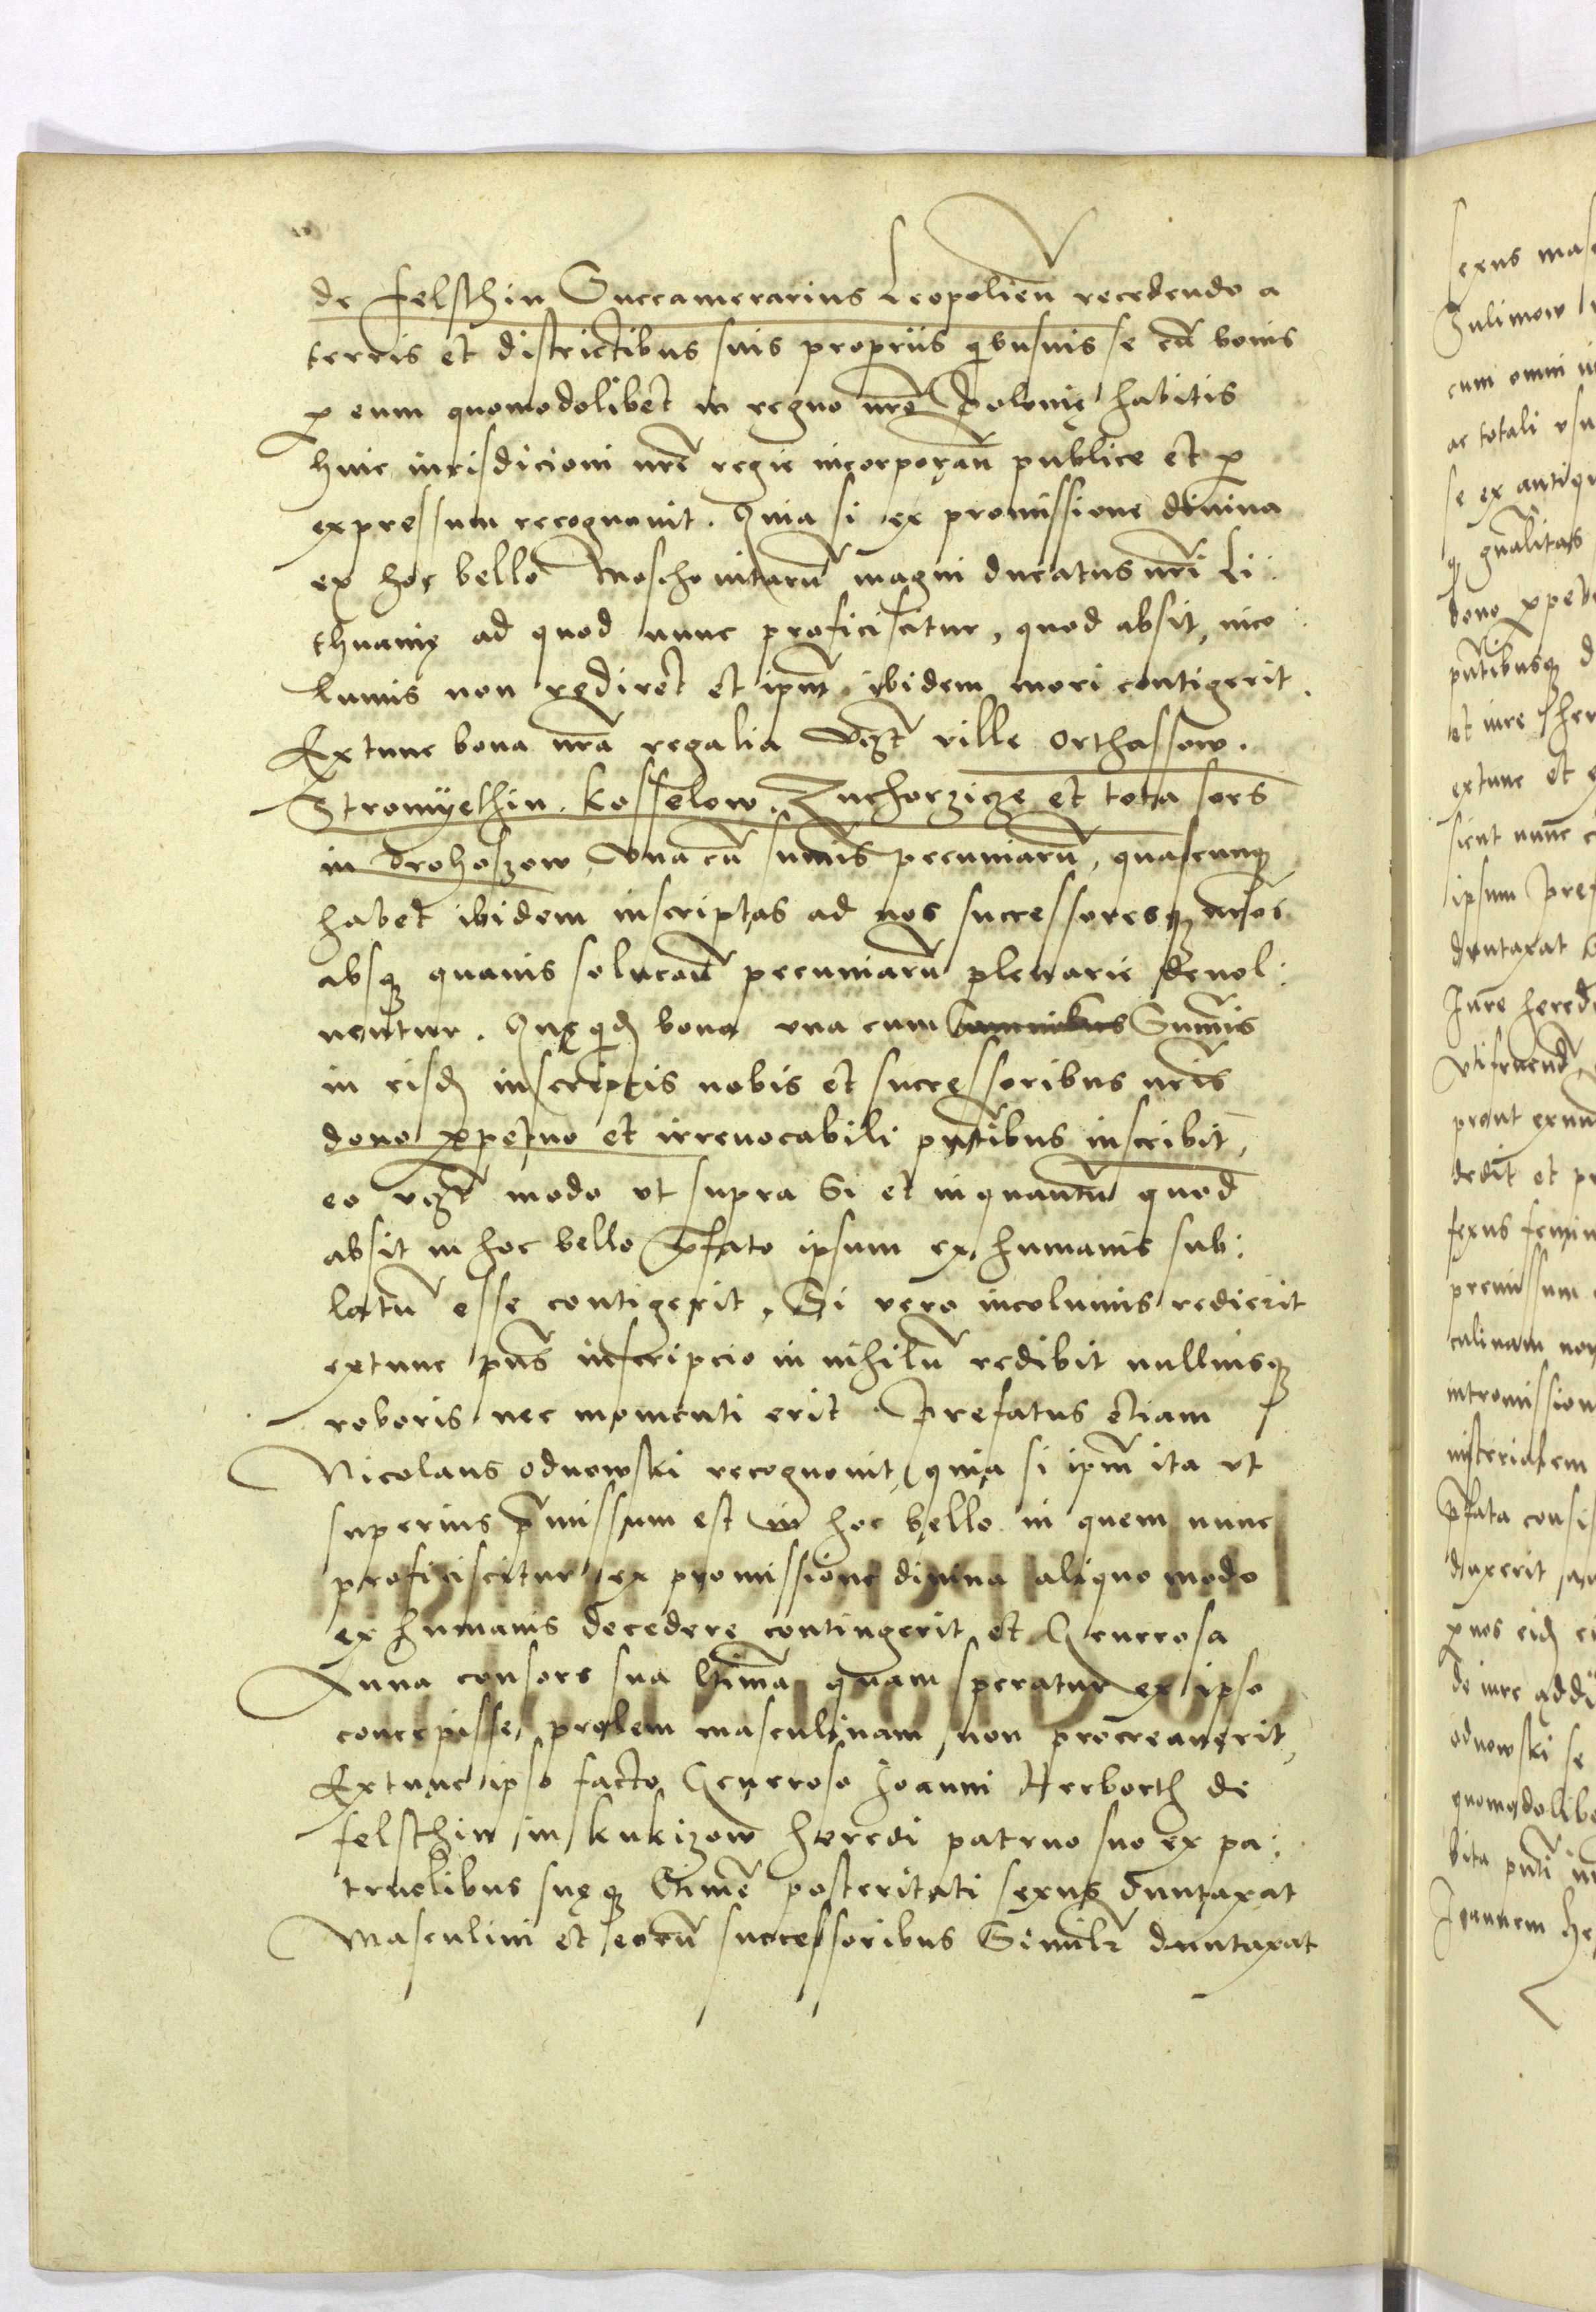 de felsthin Succamerarius Leopolien̄ recedendo a
terris et districtibus suis propriis qibusuis se cū bonis
ꝑ eum quomodolibet in regno nr̄o Polonię habitis
huic iurisdicioni nr̄e regie incorporan̄ publice et ꝑ
expressum recognouit. Quia si ex promissione diuina
ex hoc bello Moschouitarū magni ducatus nr̄i Li:
thuanię ad quod nunc proficiscitur, quod absit, inco:
lumis non rediret et ipm̄ ibidem mori contigerit.
Extunc bona nr̄a regalia vꝫt ville Orthassow.
Stromyethin. Kosselow. Zuchorzicze et tota sors
in Drohoszow, Vna cū sum̄is pecuniarū, quascunqꝫ
habet ibidem inscriptas ad nos successoresqꝫ nr̄os
absqꝫ quauis soluc̄ōn̄ pecuniarū plenarie deuol:
uentur. Quę qid̄ bona vna cum summis Sum̄is
in eisd̄ inscriptis nobis et successoribus nr̄is
dono ꝑpetuo et irreuocabili pn̄tibus inscribit,
eo vꝫt modo vt supra Si et inquantū quod
absit in hoc bello p̄fato ipsum ex humanis sub:
latū esse contigerit, Si vero incolumis redierit
extunc pn̄s inscripcio in nihilū redibit nulliusqꝫ
roboris nec momenti erit. Prefatus etiam
Nicolaus Odnowski recognouit, quia si ipm̄ ita vt
superius p̄missum est in hoc bello in quem nunc
proficiscitur ex promissione diuina aliquo modo
ex humanis decedere contingerit et Generosa
Anna consors sua l̄tima quam speratur ex ipso
concepisse, prolem masculinam non procreauerit,
Extunc ipso facto Generoso Joanni Herborth de
felsthin in Kukizow heredi patruo suo ex pa:
truelibus suęqꝫ l̄time posteritati sexus duntaxat
Masculini et eorū successoribus Simil̄r duntaxat
sexus mas
Zulimow
cum omni iu
ac totali vsu
se ex antiqu
gn̄alitas
dono ꝑpet
pn̄tibusqꝫ d
et iure her
extunc et
sicut nunc
ipsum pref
duntaxat
Jure hered
vtifruend
prout
dedit et p
sexus femin
premissum
culinam non
intromission
nisterialem
p̄fata cons
duxerit
ꝑ nos eid̄
de iure addi
Odnowski se
quomodolibe
bita pn̄ti
Joannem He